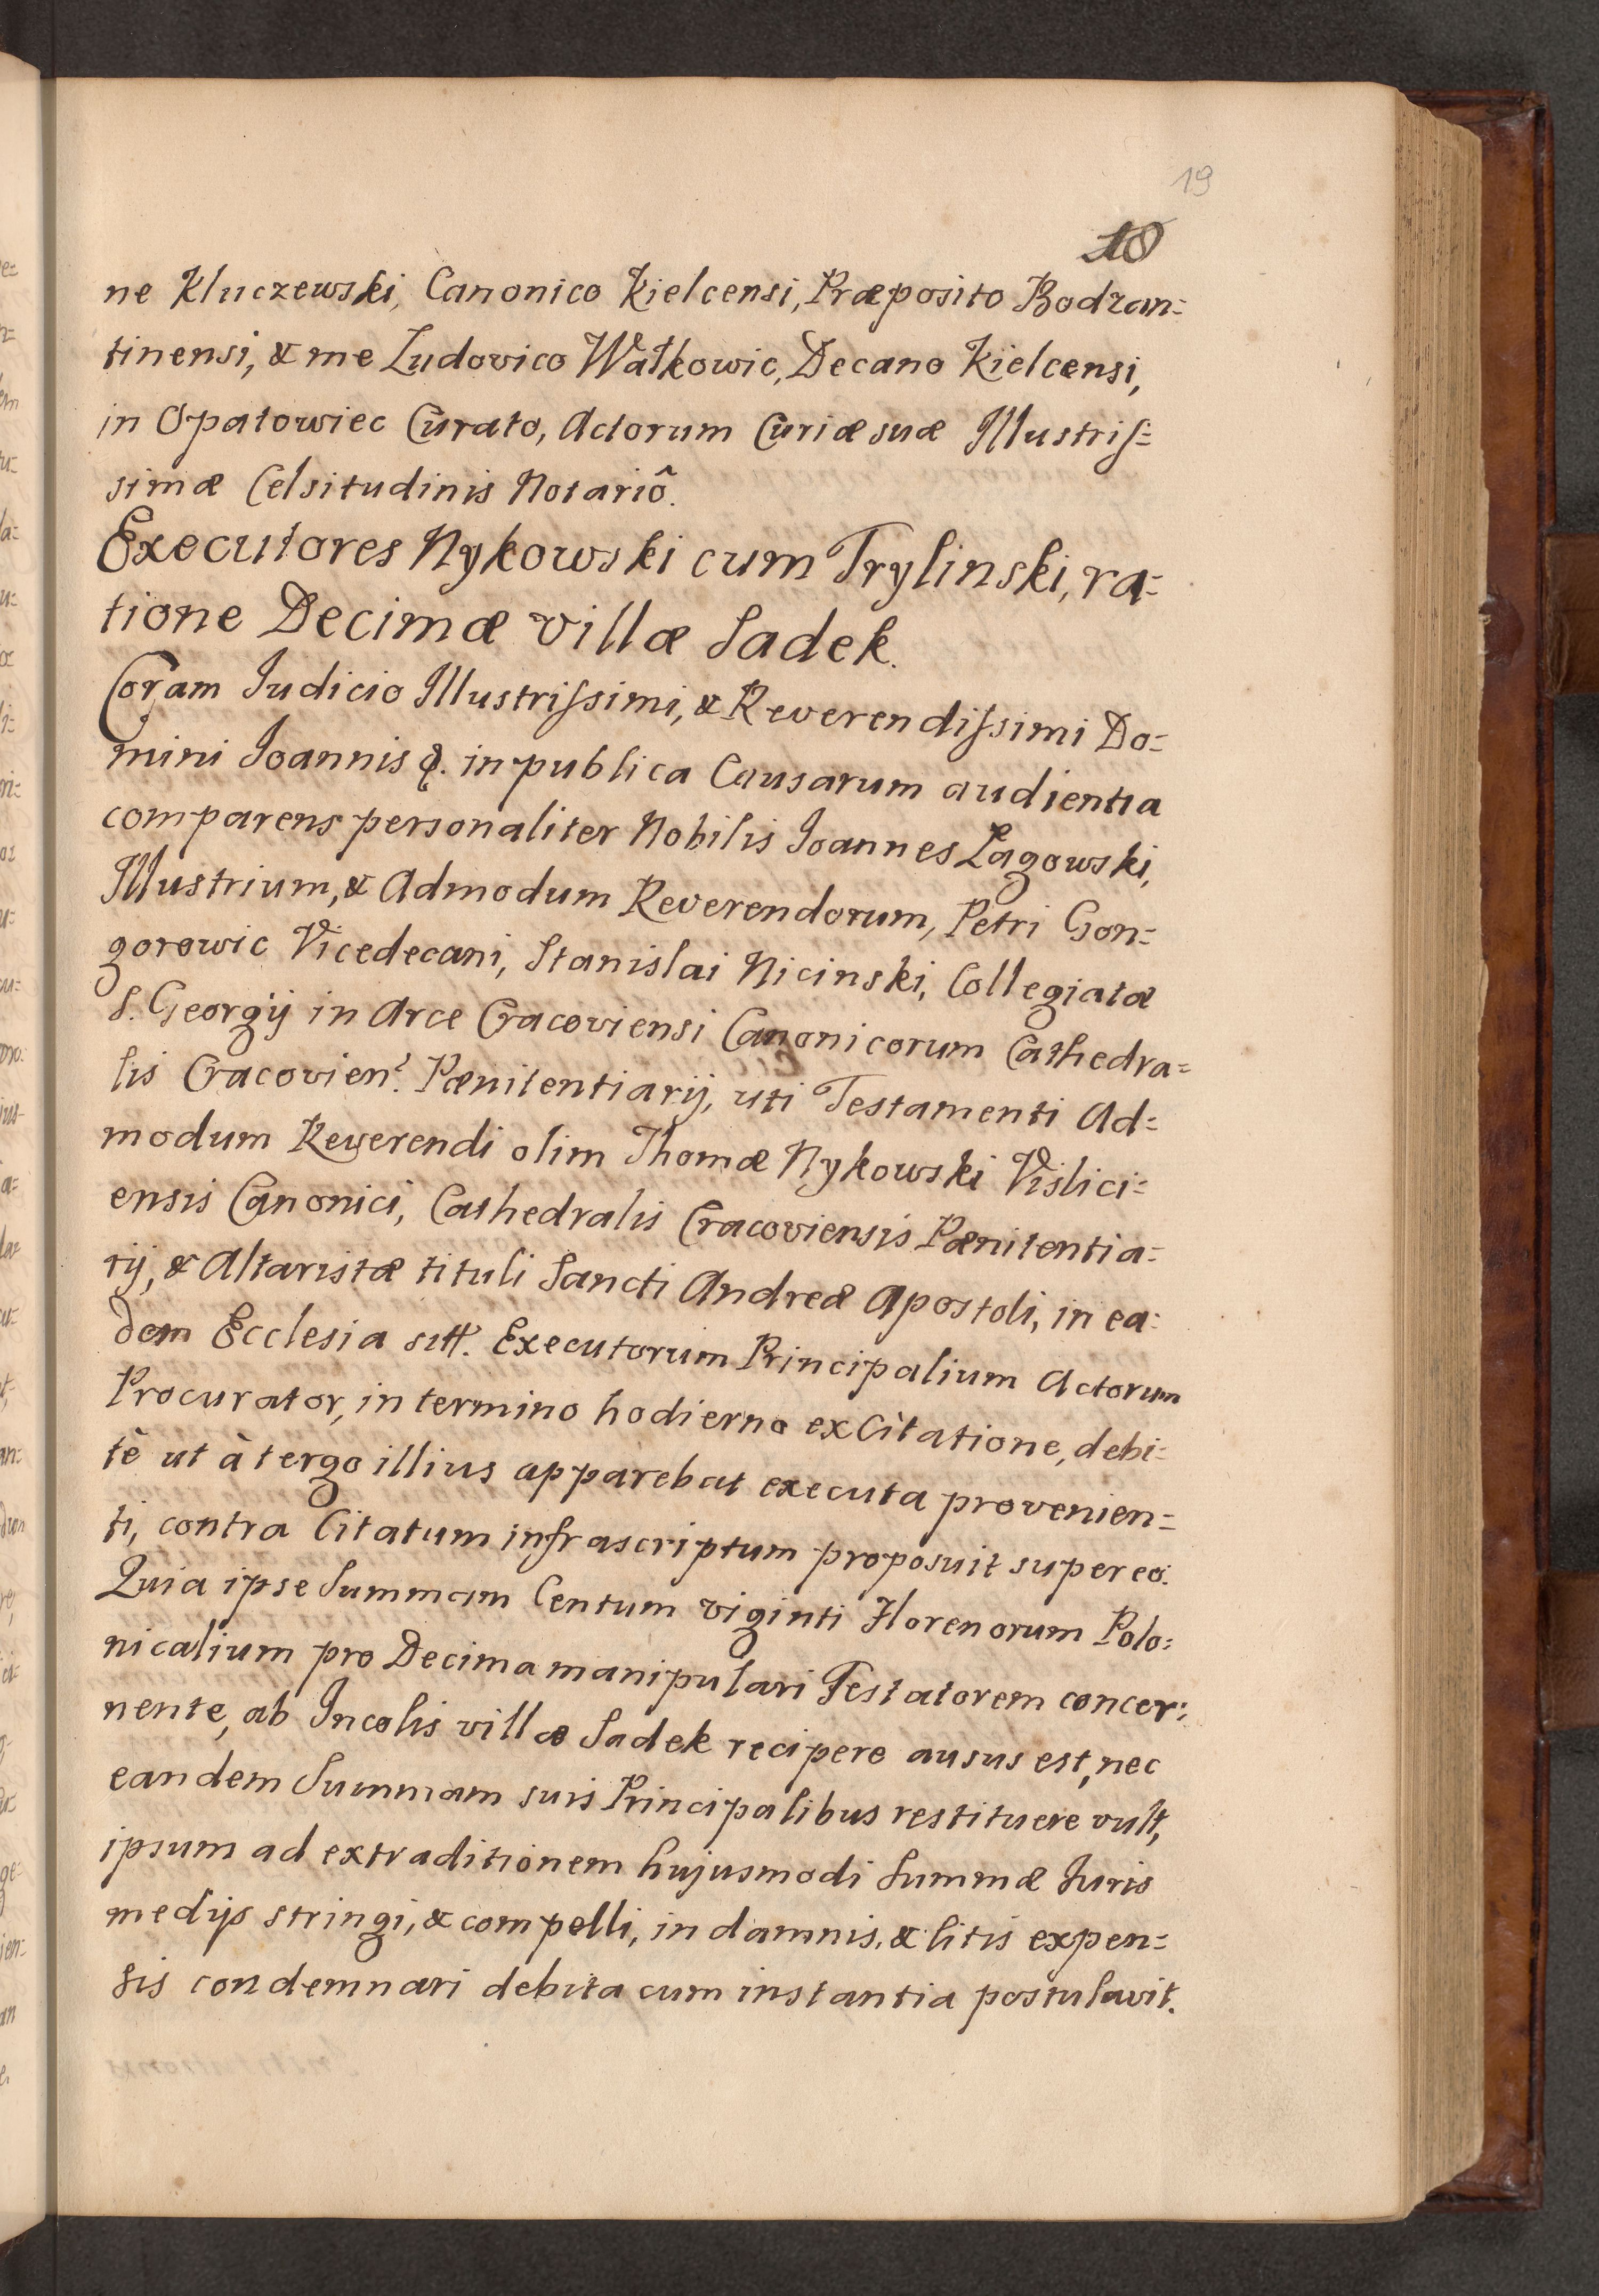 19
18
ne Kluczewski, Canonico Kielcensi, Præposito Bodzan=
tinensi, & me Ludovico Wałkowic, Decano Kielcensi,
in Opatowiec Curato, Actorum Curiæ suæ Illustriſ=
simæ Celsitudinis Notariô.
Executores Nykowski cum Trylinski, ra=
tione Decimæ villæ Sadek.
Coram Iudicio Illustriſsimi, & Reverendiſsimi Do=
mini Ioannis &. in publica Causarum audientia
comparens personaliter Nobilis Ioannes Łagowski,
Illustrium, & Admodum Reverendorum, Petri Gon=
gorowic Vicedecani, Stanislai Nicinski, Collegiatæ
S. Georgij in Arce Cracoviensi Canonicorum Cathedra=
lis Cracovien? Pænitentiarij, uti Testamenti Ad=
modum Reverendi olim Thomæ Nykowski Vislici=
ensis Canonici, Cathedralis Cracoviensis Pænitentia=
rij, & Altaristæ tituli Sancti Andreæ Apostoli, in ea=
dem Ecclesia sitt. Executorum Principalium Actorum
Procurator, in termino hodierno ex Citatione, debi=
tè ut à tergo illius apparebat executa provenien=
ti, contra Citatum infrascriptum proposuit super eo.
Quia ipse Summam Centum viginti Florenorum Polo=
nicalium pro Decima manipulari Testatorem concer=
nente, ab Incolis villæ Sadek recipere ausus est, nec
eandem Summam suis Principalibus restituere vult,
ipsum ad extraditionem hujusmodi Summæ Iuris
medijs stringi, & compelli, in damnis, & litis expen=
sis condemnari debita cum instantia postulavit.